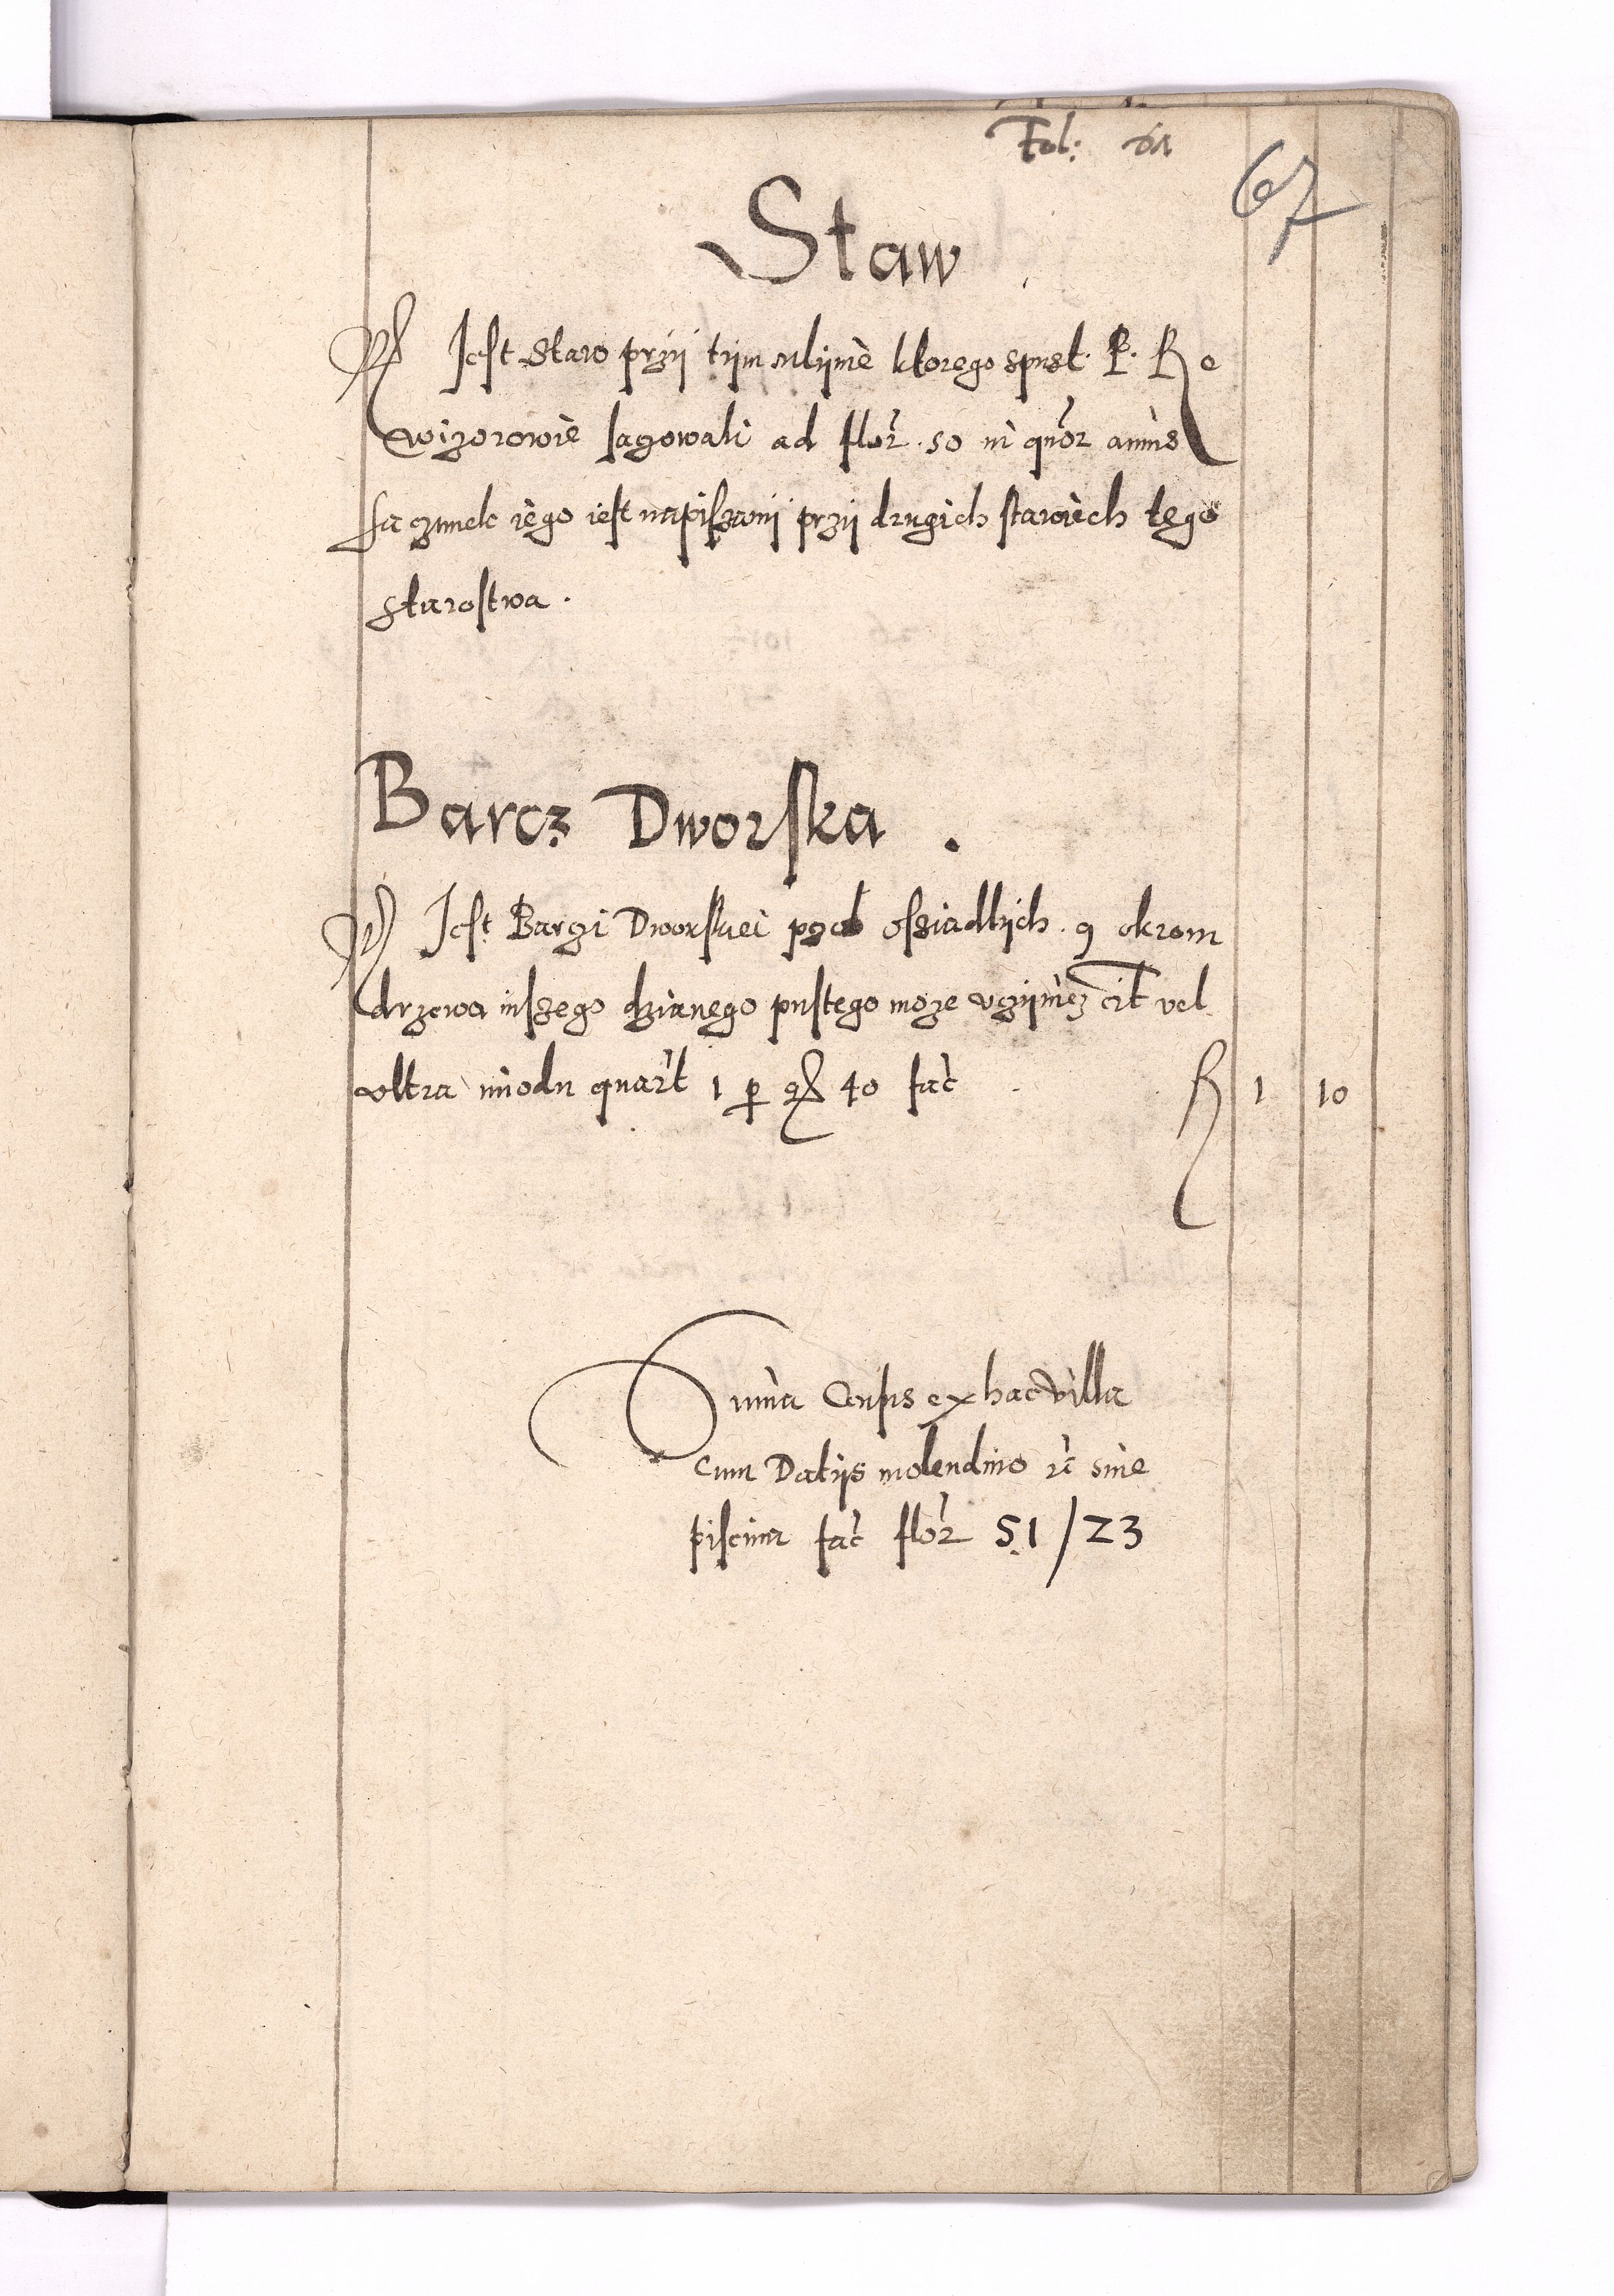 Fol: 61
67
Staw
Jest Staw przy tym mlynie ktorego spust. P. Re
wizorowie sacowali ad flor. 50 in quor annis
saczunek iego iest napiszany przy drugich stawiech tego
starostwa.
Barcz Dworska.
Jest Barzi Dworskiei pzol ossiadlych. 9 okrom
drzewa inszego dzianego pustego moze uczynicz cit vel
ultra miodu quart 1 per gr 40 fac R 1 10
Summa Census ex hac villa
cum Datijs molendino et sine
piscina fac flor 51/23